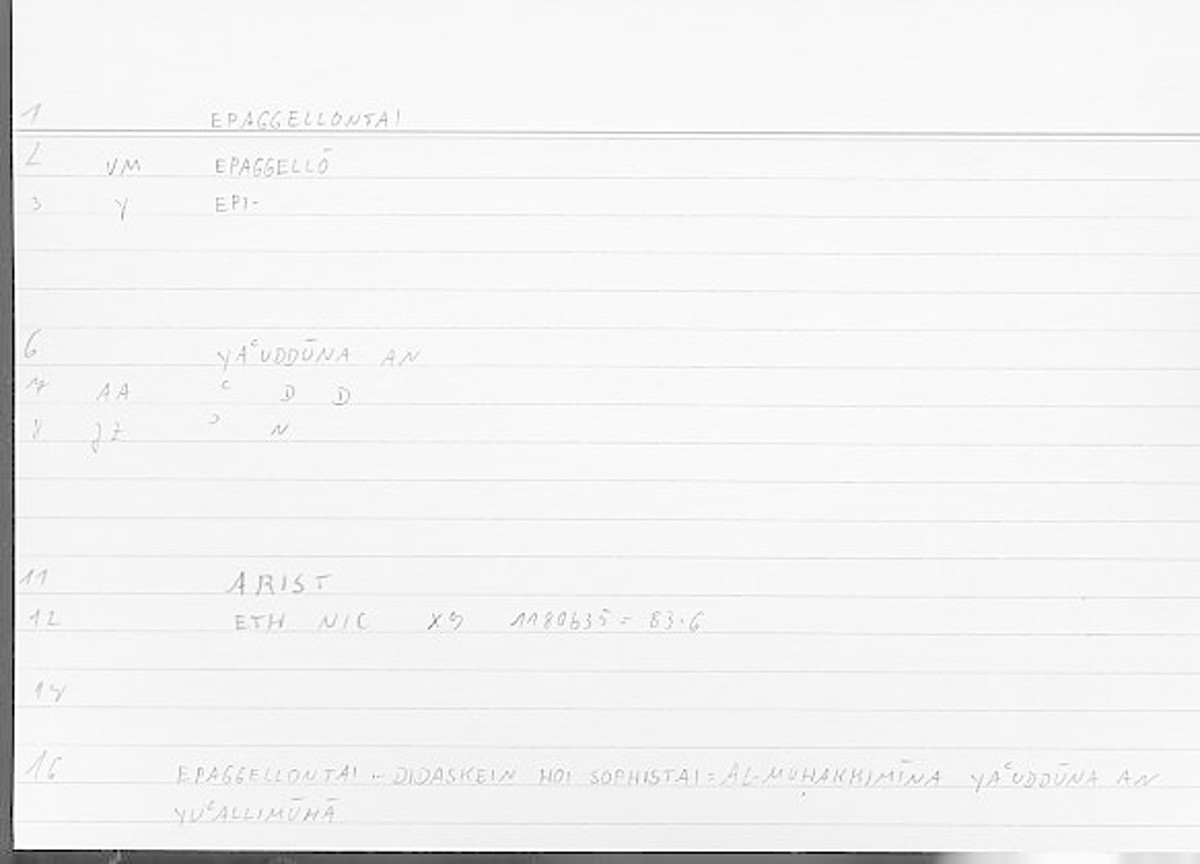 1 EPAGGELLONTAI
2 VM EPAGGELLŌ
3 Y EPI-
6 YAʿUDDŪNA AN
7 AA ʿ D D
8 ʾ N
11 ARIST
12 ETH NIC X9 1180b35 = 83.6
14
16 EPAGGELLONTAI .. DIDASKEIN HOI SOPHISTAI = AL-MUḤAKKIMĪNA YAʿUDDŪNA AN
YUʿALLIMŪHĀ